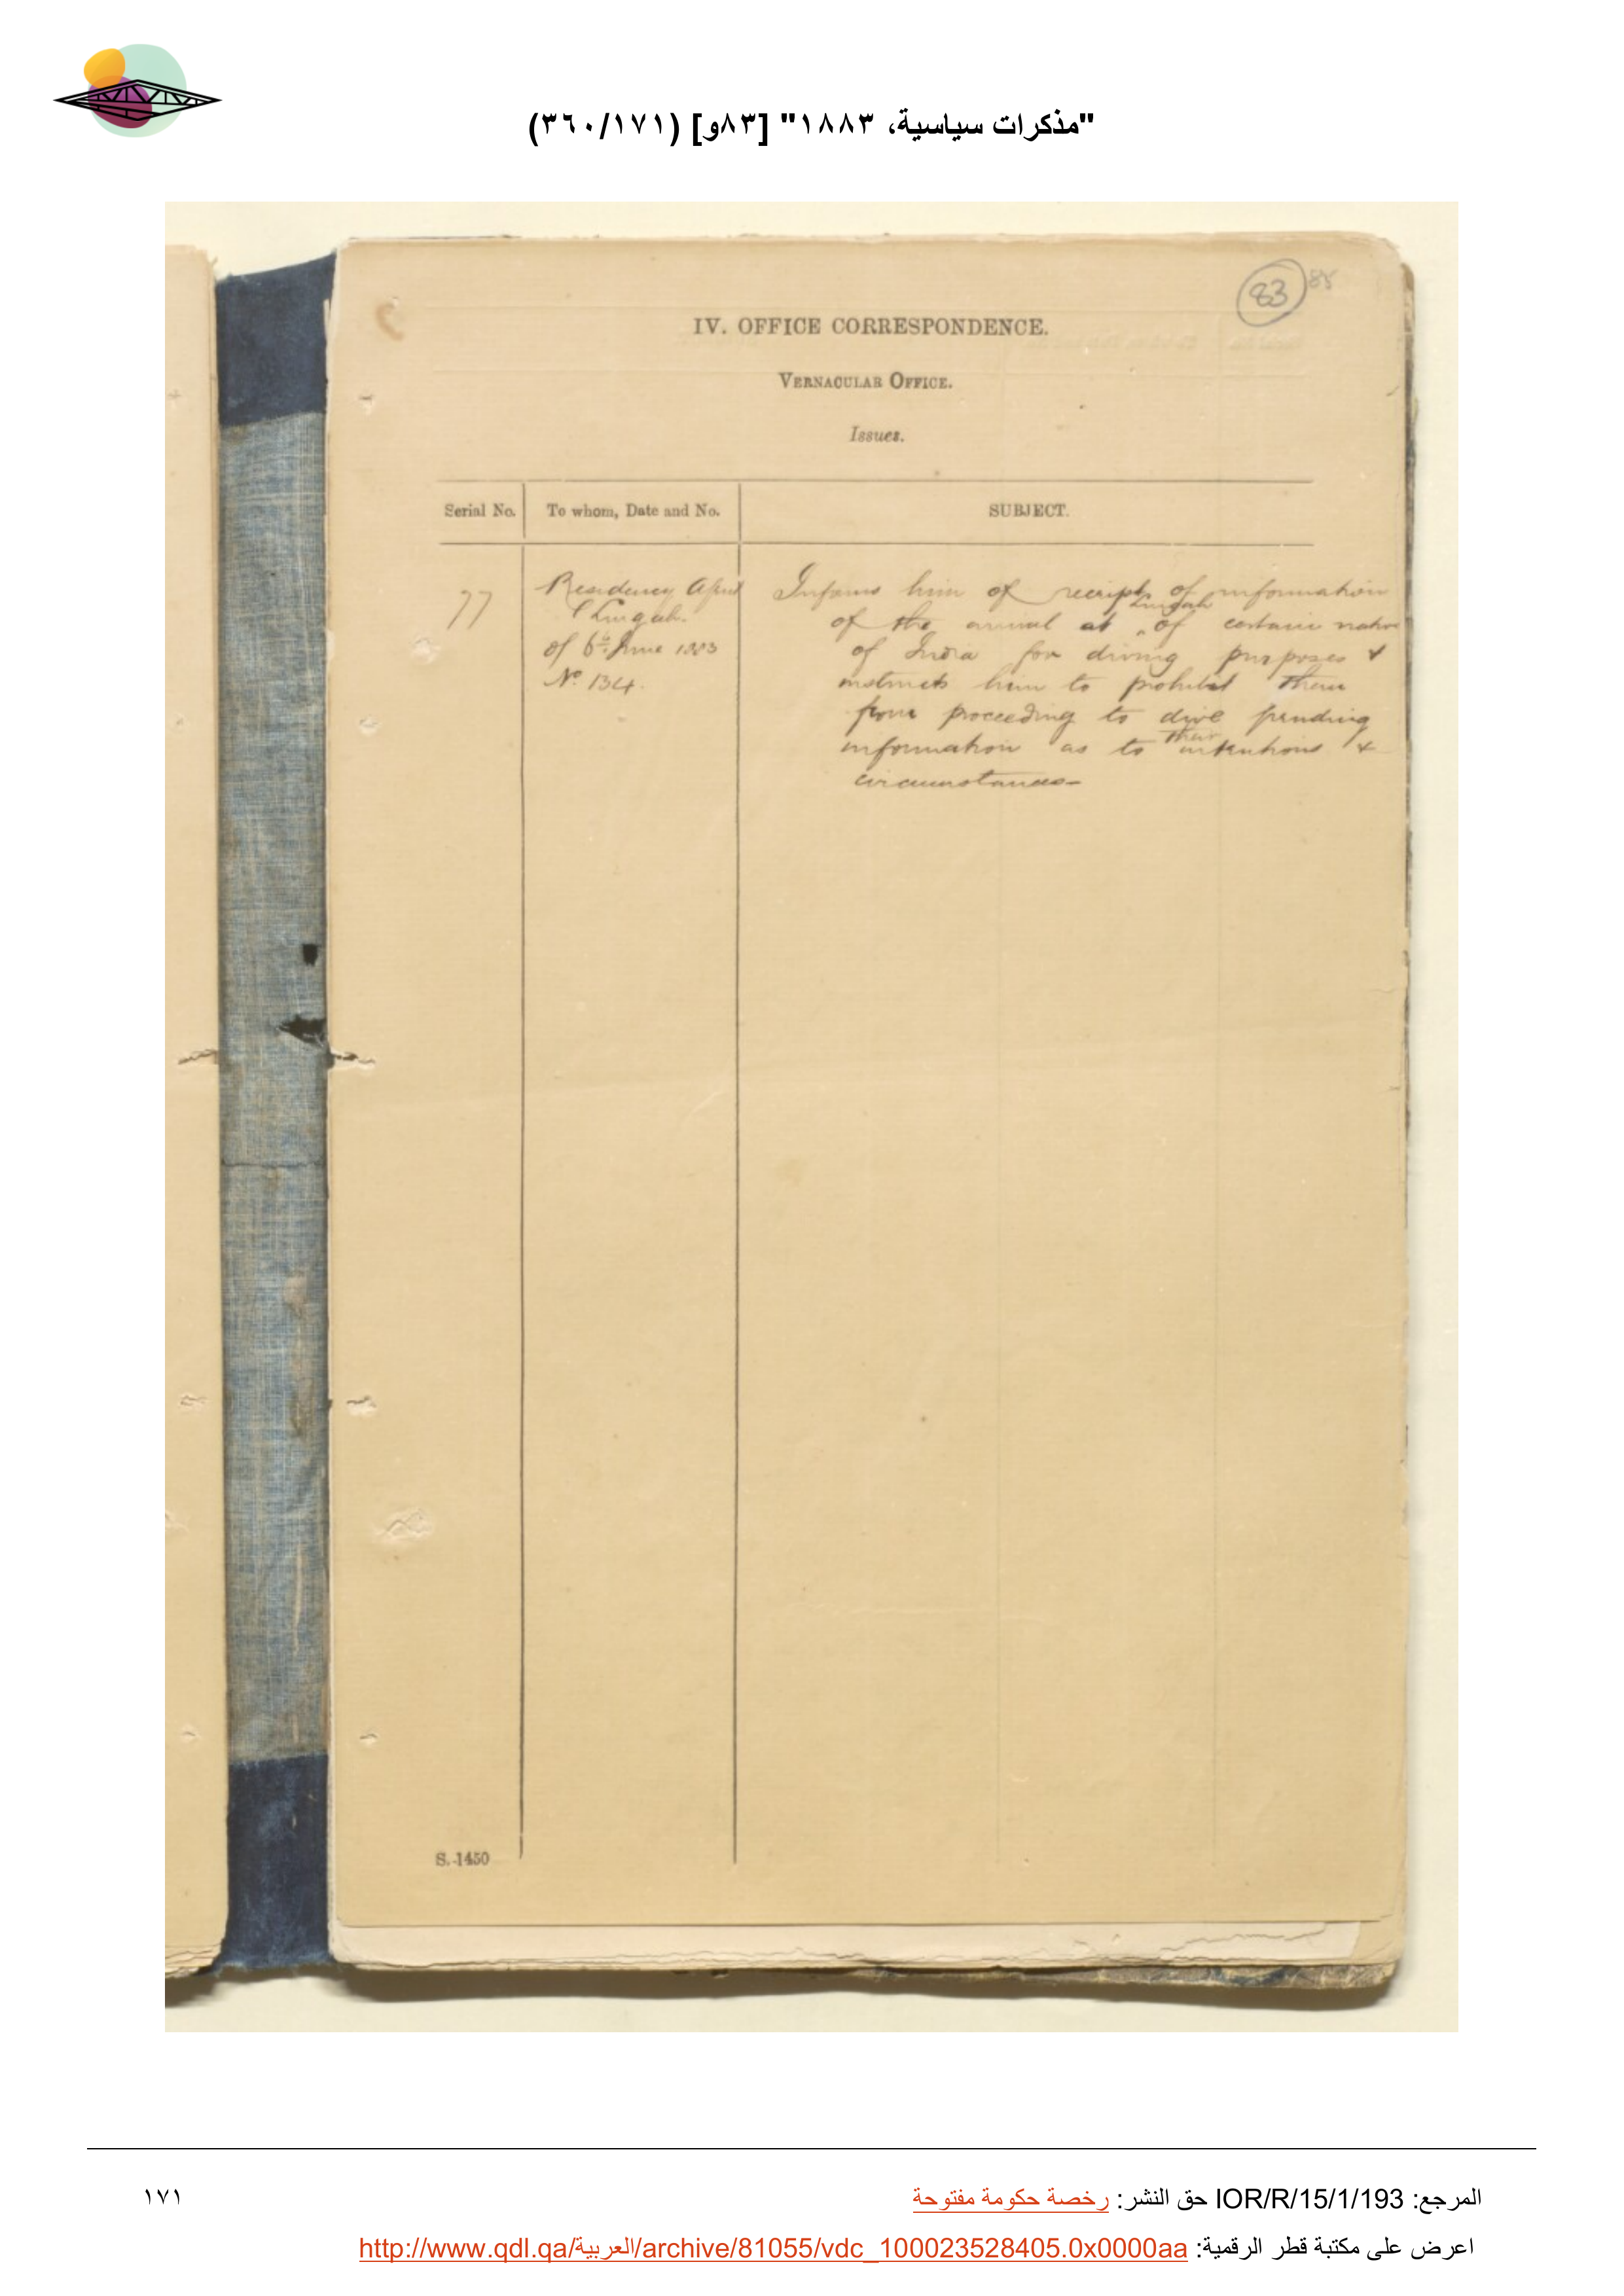 "مذكرات سياسية، ١٨٨٣" [٨٣و] (٣٦٠/١٧١)
83 85
IV. OFFICE CORRESPONDENCE.
VERNACULAR OFFICE.
Issues.
Serial No. To whom, Date and No. SUBJECT.
77
Residency Agent
Lingah.
of 6th June 1883
No. 134.
Informs him of receipt of information
of the arrival at Lingah of certain native
of India for diving purposes &
instructs him to prohibit them
from proceeding to dive pending
information as to their intentions &
circumstances—
S. 1450
المرجع: IOR/R/15/1/193 حق النشر: رخصة حكومة مفتوحة
١٧١
اعرض على مكتبة قطر الرقمية: http://www.qdl.qa/العربية/archive/81055/vdc_100023528405.0x0000aa